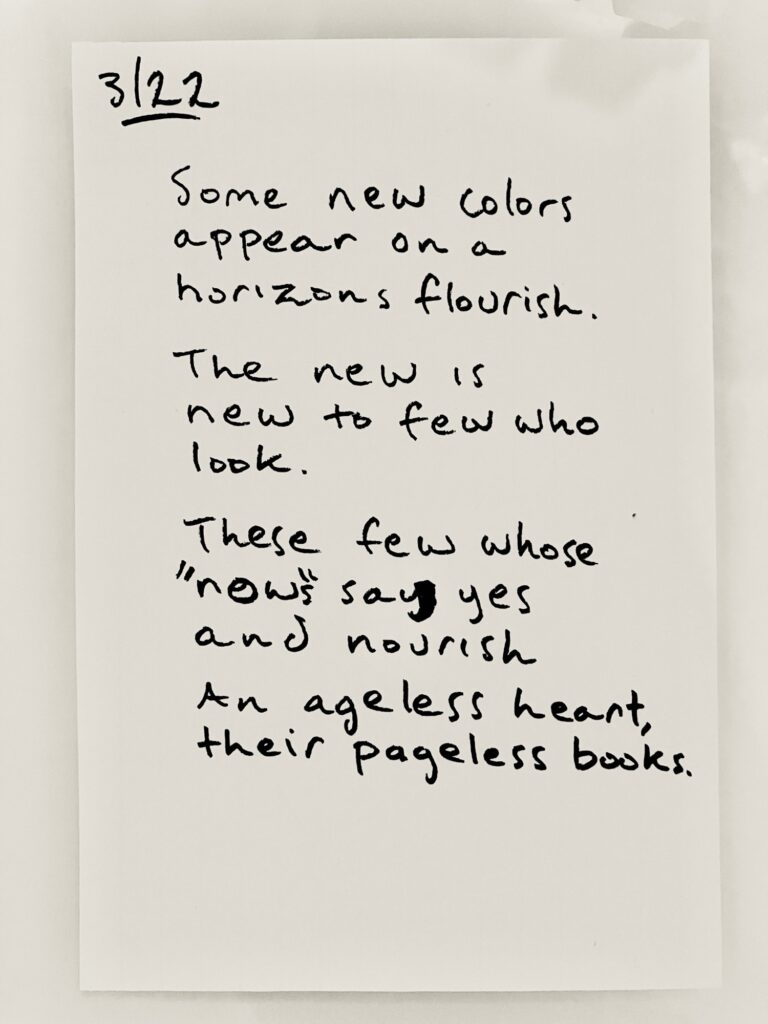 3/22
Some new colors
appear on a
horizons flourish.
The new is
new to few who
look.
These few whose
"now"s say yes
and nourish
An ageless heart,
their pageless books.